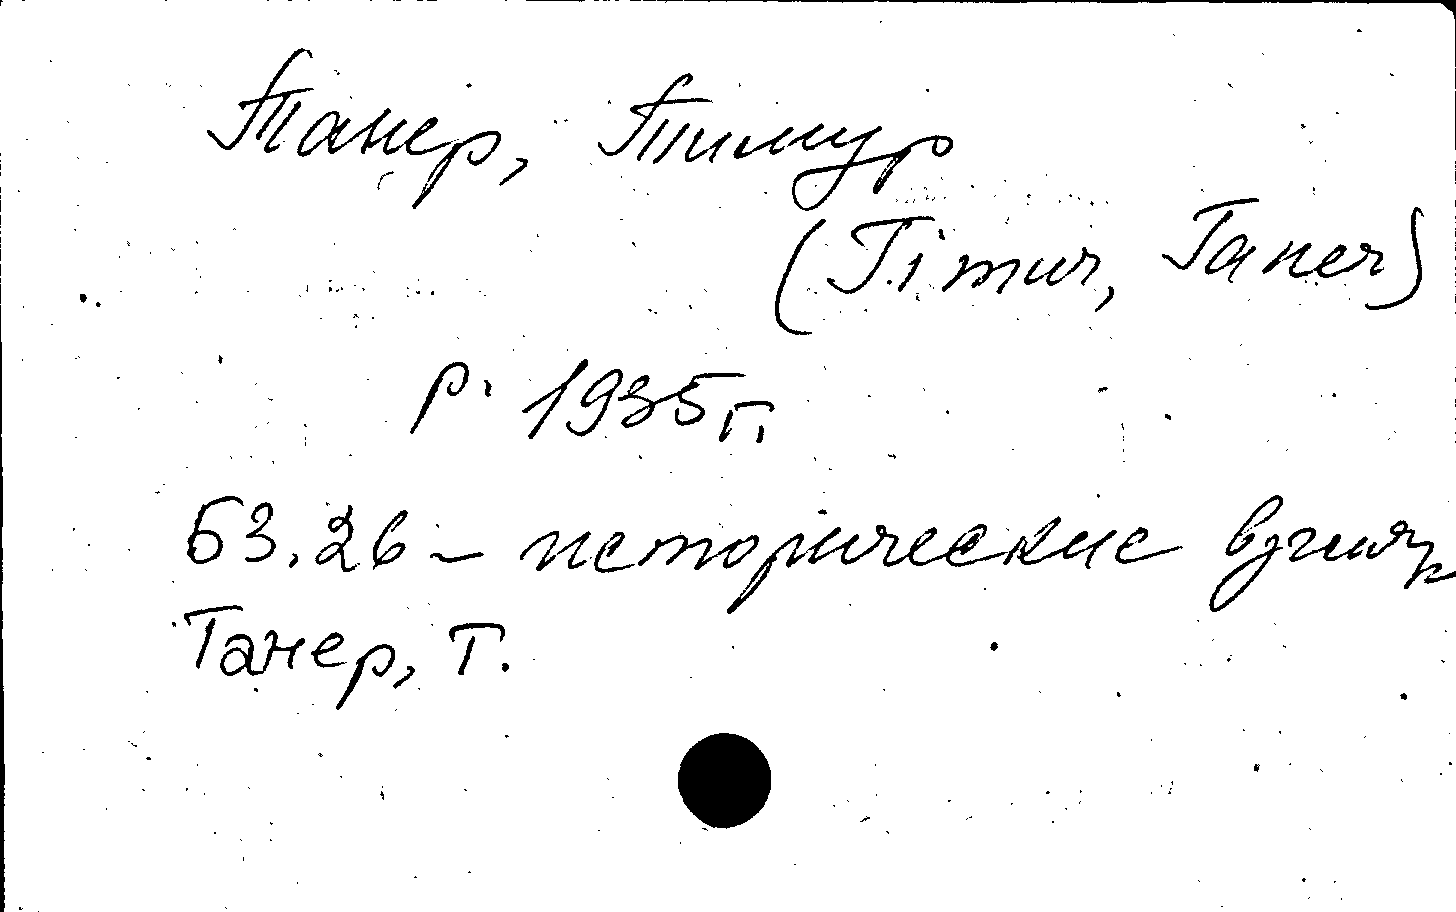 Танер, Тимур
(Timur, Taner)
р. 1935г.
63.26 – исторические взгляд
Танер, Т.